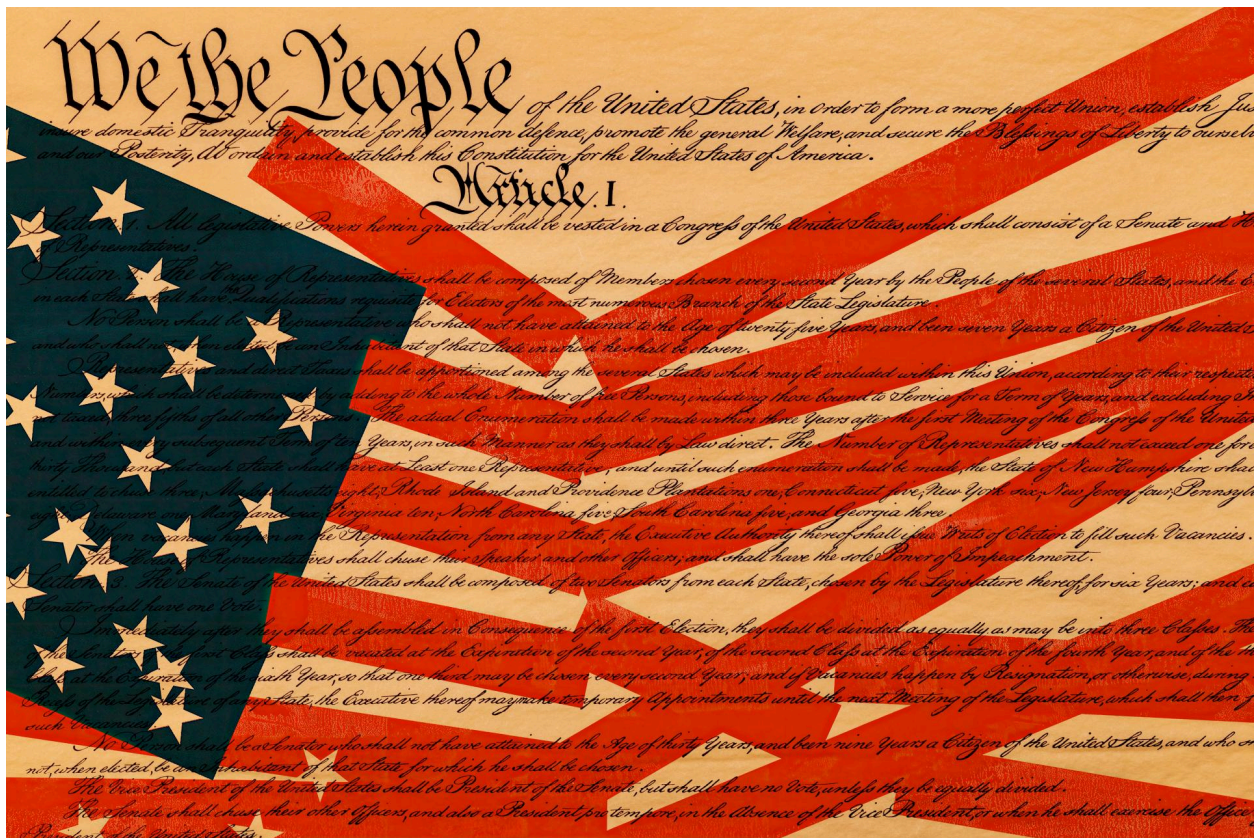 We the People of the United States, in order to form a more perfect Union, establish Jus
insure domestic Tranquility, provide for the common defence, promote the general Welfare, and secure the Blessings of Liberty to oursel
and our Posterity, do ordain and establish this Constitution for the United States of America.
Article. I.
Section. 1. All legislative Powers herein granted shall be vested in a Congress of the United States, which shall consist of a Senate and H
of Representatives.
Section. The House of Representatives shall be composed of Members chosen every second Year by the People of the several States, and the E
in each State shall have the Qualifications requisite for Electors of the most numerous Branch of the State Legislature.
No Person shall be a Representative who shall not have attained to the Age of twenty five Years, and been seven Years a Citizen of the United S
and who shall not when elected, be an Inhabitant of that State in which he shall be chosen.
Representatives and direct Taxes shall be apportioned among the several States which may be included within this Union, according to their respecti
Numbers, which shall be determined by adding to the whole Number of free Persons, including those bound to Service for a Term of Years, and excluding In
not taxed, three fifths of all other Persons. The actual Enumeration shall be made within three Years after the first Meeting of the Congress of the United
and within every subsequent Term of ten Years, in such Manner as they shall by Law direct. The Number of Representatives shall not exceed one for
thirty Thousand, but each State shall have at Least one Representative; and until such enumeration shall be made, the State of New Hampshire shall
entitled to chuse three, Massachusetts eight, Rhode Island and Providence Plantations one, Connecticut five, New York six, New Jersey four, Pennsyl
eight, Delaware one, Maryland six, Virginia ten, North Carolina five, South Carolina five, and Georgia three.
When vacancies happen in the Representation from any State, the Executive Authority thereof shall issue Writs of Election to fill such Vacancies.
The House of Representatives shall chuse their Speaker and other Officers; and shall have the sole Power of Impeachment.
Section. 3. The Senate of the United States shall be composed of two Senators from each State, chosen by the Legislature thereof, for six Years; and ea
Senator shall have one Vote.
Immediately after they shall be assembled in Consequence of the first Election, they shall be divided as equally as may be into three Classes. The
of the Senators of the first Class shall be vacated at the Expiration of the second Year, of the second Class at the Expiration of the fourth Year, and of the th
Class at the Expiration of the sixth Year, so that one third may be chosen every second Year; and if Vacancies happen by Resignation, or otherwise, during
Recess of the Legislature of any State, the Executive thereof may make temporary Appointments until the next Meeting of the Legislature, which shall then f
such Vacancies.
No Person shall be a Senator who shall not have attained to the Age of thirty Years, and been nine Years a Citizen of the United States, and who s
not, when elected, be an Inhabitant of that State for which he shall be chosen.
The Vice President of the United States shall be President of the Senate, but shall have no Vote, unless they be equally divided.
The Senate shall chuse their other Officers, and also a President pro tempore, in the Absence of the Vice President, or when he shall exercise the Office
President of the United States.